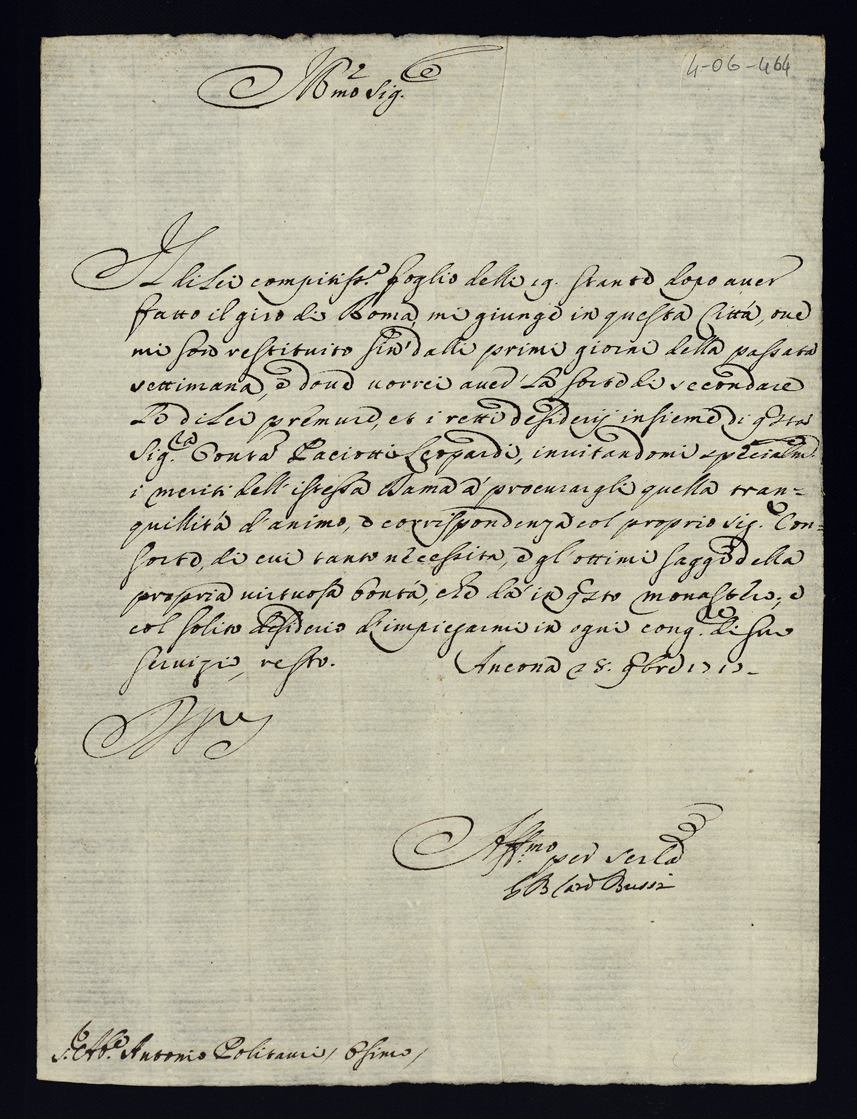 4-06-464
Ill.mo Sig.re
Il di Lei compitiss.o foglio delli 19. stante dopo aver
fatto il giro di Roma, mi giunge in questa Città, ove
mi sono restituito sin' dalli primi giorni della passata
settimana, e dove vorrei aver la sorte di secondare
le di Lei premure, et i retti desiderij insieme di q.sta
Sig.ra Cont.a Paciotti Leopardi, invitandomi specialm.e
i meriti dell'istessa Dama à procurargli quella tran=
quillità d'animo, e corrispondenza col proprio Sig.e Con=
sorte, di cui tanto necessita, e gl'ottimi saggi della
propria virtuosa bontà, che dà in q.sto monastero; e
col solito desiderio d'impiegarmi in ogni cong.re di suo
servizio, resto. Ancona 28. 9bre 1717.
Aff.mo per ser.la
GB Card Bussi
S. Ab.e Antonio Politauri / Osimo /